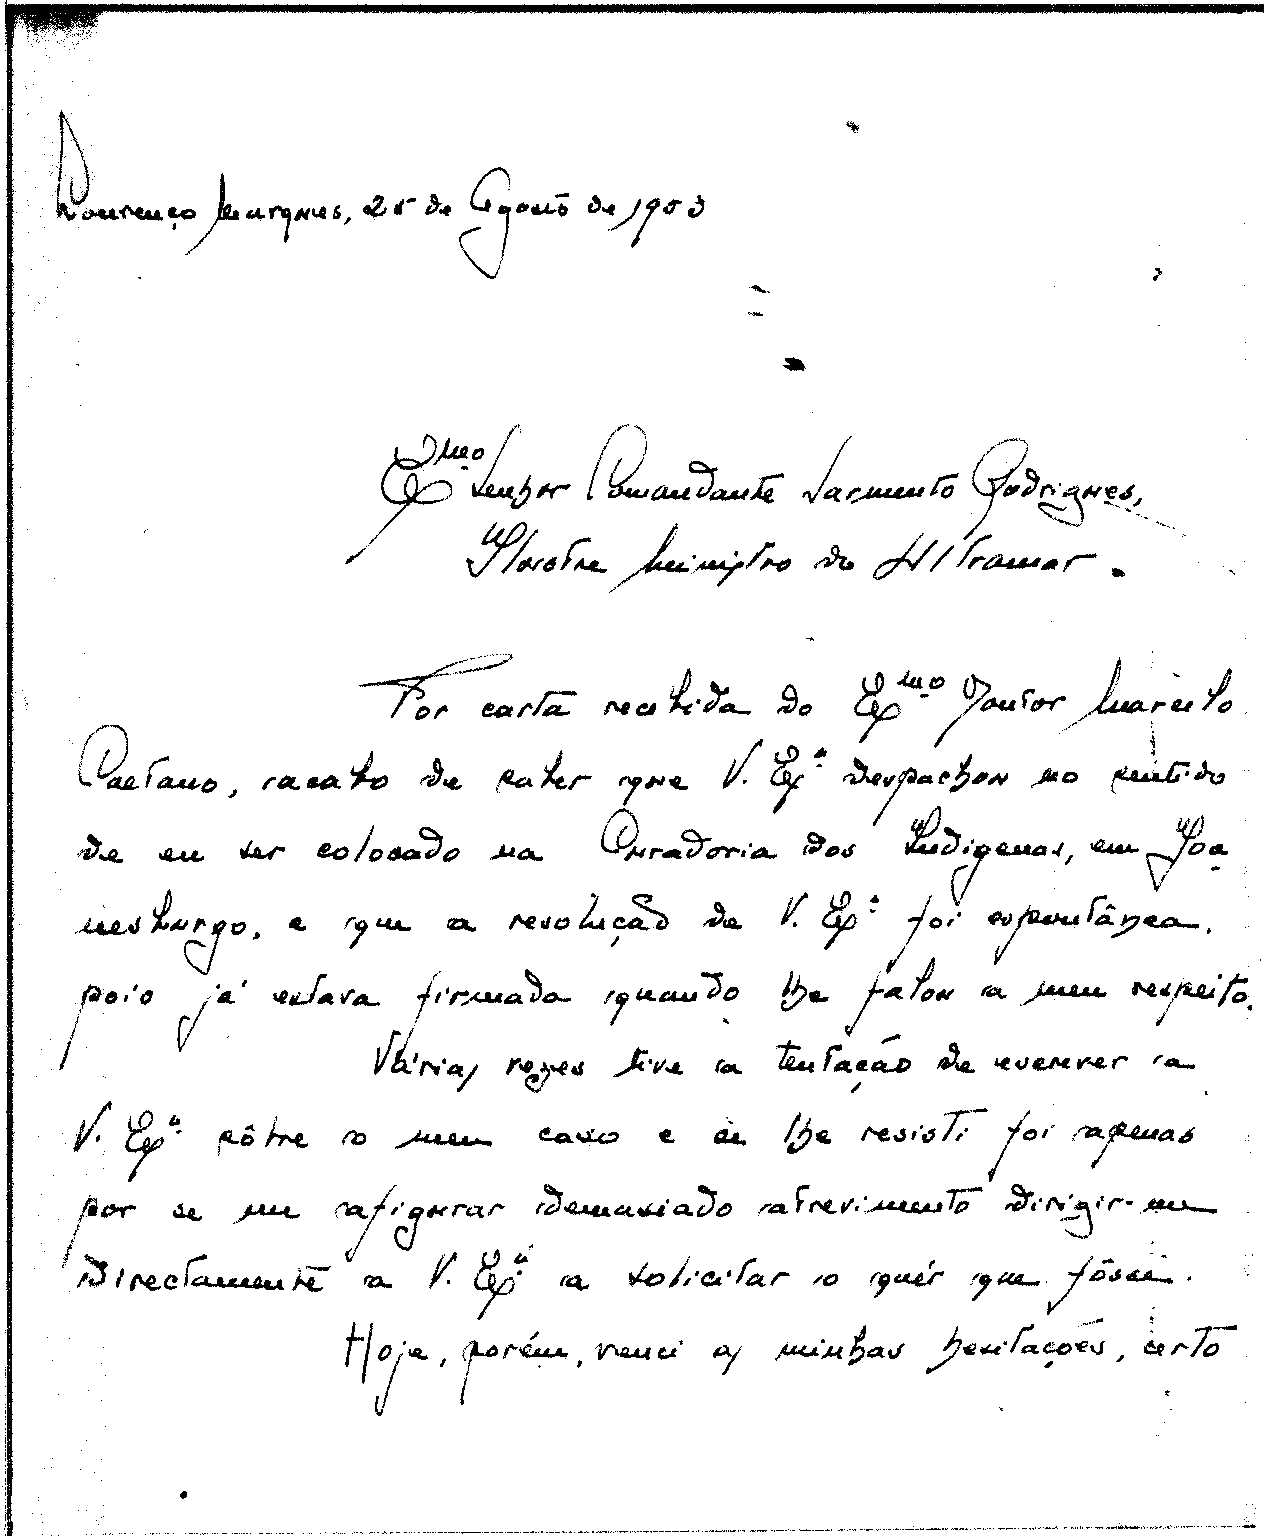 Lourenço Marques, 25 de Agosto de 1953
Exmo Senhor Comandante Sarmento Rodrigues,
Ilustre Ministro do Ultramar.
Por carta recebida do Exmo Doutor Marcelo
Caetano, acabo de saber que V. Exª despachou no sentido
de eu ser colocado na Curadoria dos Indígenas, em Joa
nesburgo, e que a resolução de V. Exª foi espontânea,
pois já estava firmada quando lhe falou a meu respeito.
Várias vezes tive a tentação de escrever a
V. Exª sôbre o meu caso e se lhe resisti foi apenas
por se me afigurar demasiado atrevimento dirigir-me
directamente a V. Exª a solicitar o quer que fôsse.
Hoje, porém, venci as minhas hesitações, certo